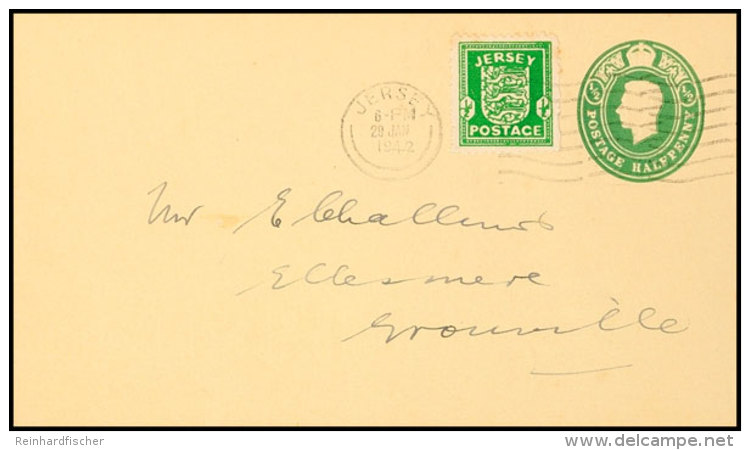 JERSEY
6-PM
29 JAN
1942
JERSEY
½
½
POSTAGE
½
½
POSTAGE HALFPENNY
Mr E
Ellesmere
Grouville
Reinhardfischer
delcampe.net